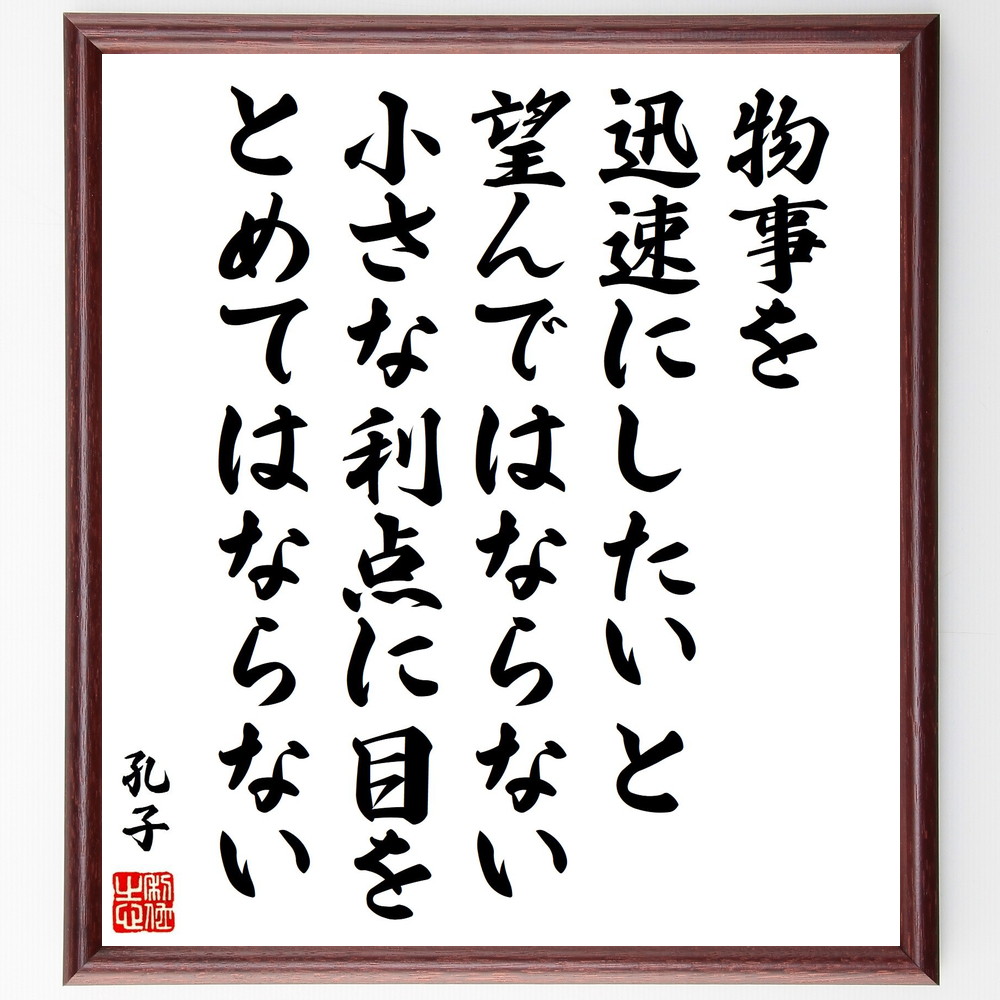 物事を
迅速にしたいと
望んではならない
小さな利点に目を
とめてはならない
孔子